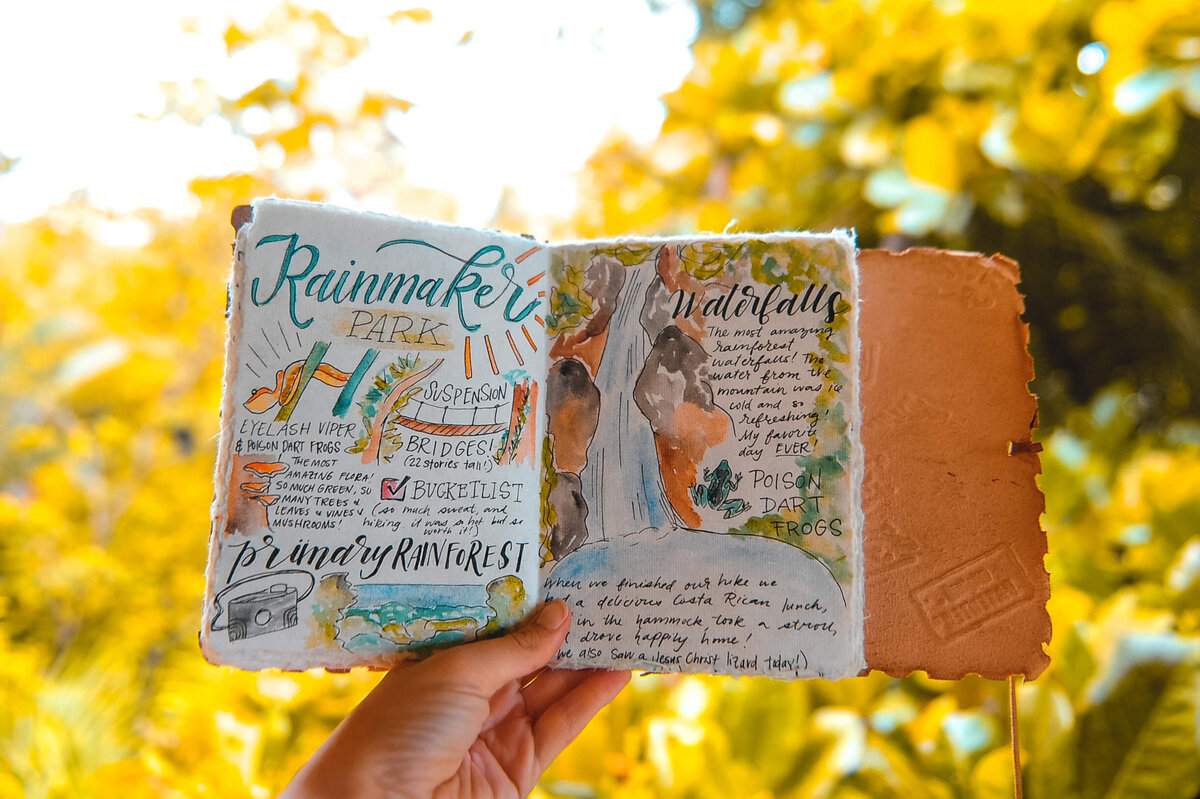 Rainmaker
PARK
SUSPENSION
BRIDGES!
(22 stories tall!)
EYELASH VIPER
& POISON DART FROGS
THE MOST
AMAZING FLORA!
SO MUCH GREEN, SO
MANY TREES &
LEAVES & VINES &
MUSHROOMS!
BUCKETLIST
(so much sweat, and
hiking, it was so hot but so
worth it!)
primary RAINFOREST
Waterfalls
The most amazing
rainforest
waterfalls! The
water from the
mountain was ice
cold and so
refreshing!
My favorite
day EVER!
POISON
DART
FROGS
When we finished our hike we
had a delicious Costa Rican lunch,
in the hammock took a stroll,
drove happily home!
we also saw a Jesus Christ lizard today!)